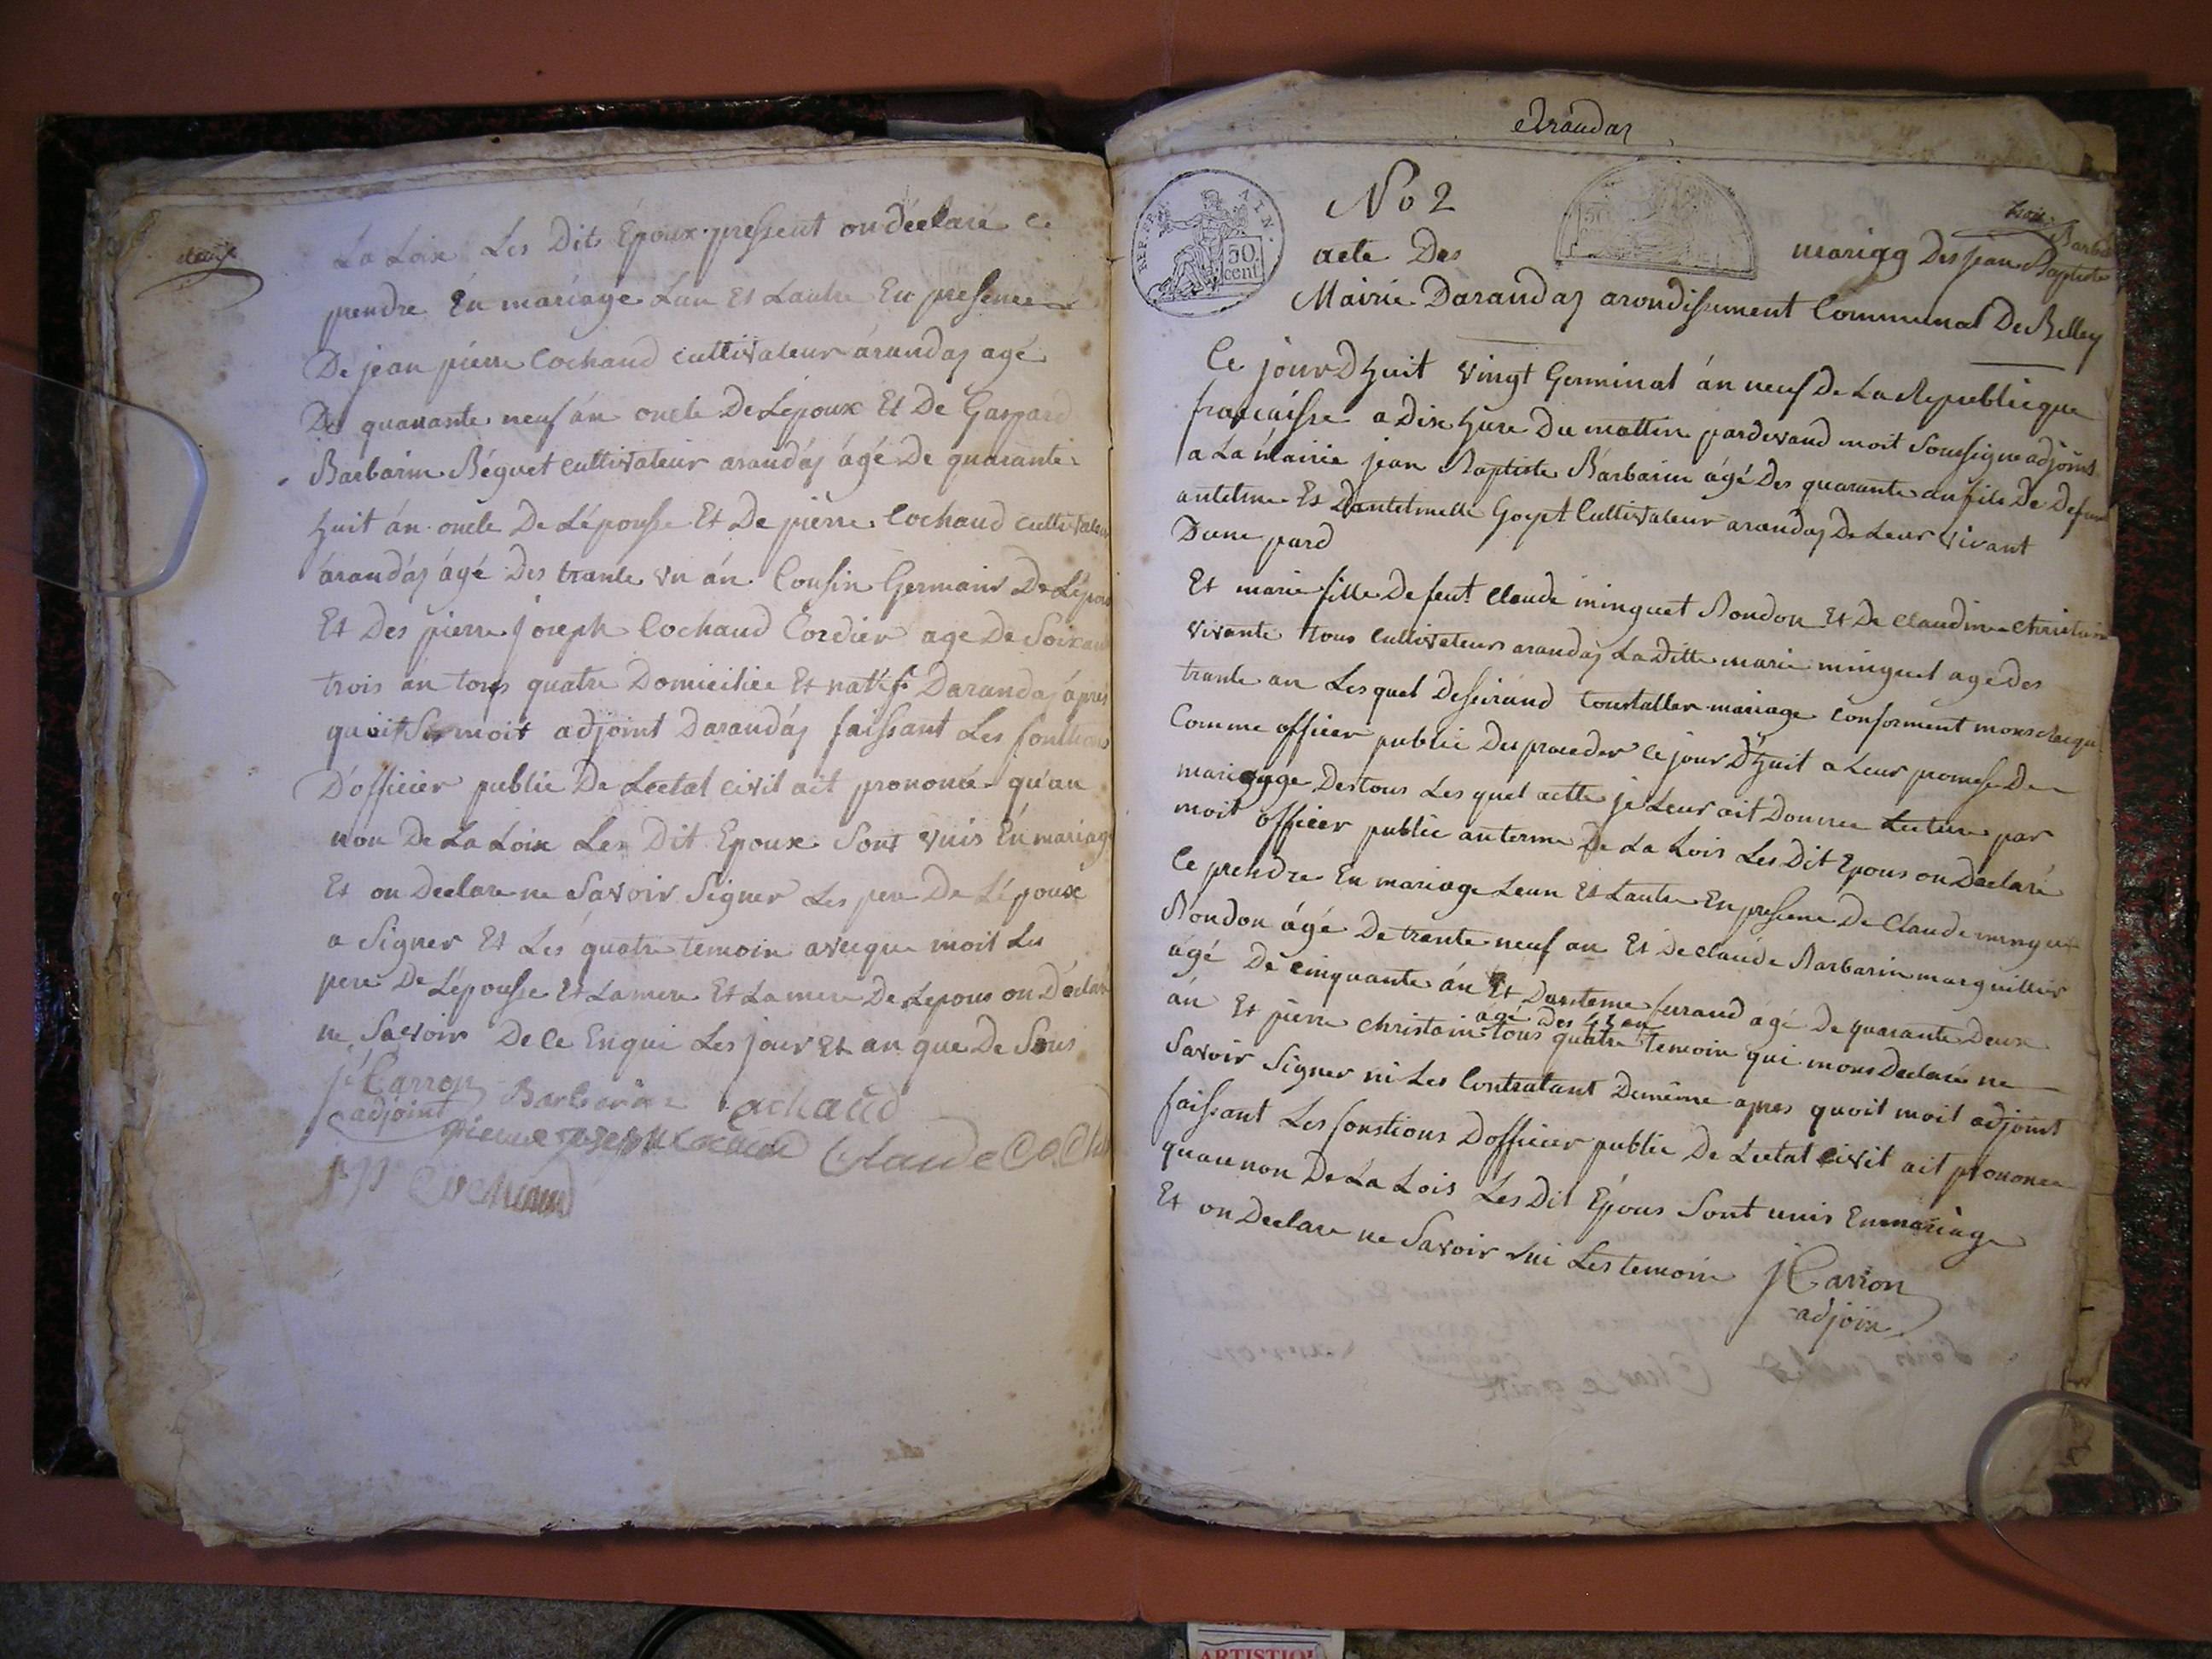 deux
La Loix Les Dits Époux pressent on déclaré Ce
prendre En mariage Lun Et Lautre En presence
De jean pierre Cochaud cultivateur árandas agé
De quarante neuf án oncle De Lépoux Et De Gaspard
Barbarin Béguet cultivateur arandás ágé De quarante
huit án oncle De Lépousse Et De pierre Cochaud cultivateur
árandás ágé Des trante un án Cousin Germain De Lépous
Et Des pierre Joseph Cochaud Cordier age De Soixante
trois án tous quatre Domiciliée Et natif Darandas ápres
quoit moit adjoint Darandás faissant Les fonttions
D'officier public De Lectat civil ait prononcé qu'au
non De La Loix Les Dit Epoux Sont vnis En mariage
Et on Declare ne Savoir Signer Les pere De Lépoux
a Signer Et Les quatre temoin avecque moit Les
pere De Lépousse Et La mere Et La mere De Lepous on Déclaré
ne Savoir De Ce Enqui Les jour Et an que De Sous
J Carron
adjoint
Barbarin
Cochaud
pierre joseph Cochaud
Claude Coch
J P Cochaud
Arandas
REP. FRA. AIN.
50 cent
No 2
trois
acte Des
mariag Des jean Baptiste Barba
Mairie Darandas arondissement Communal De Belley
Ce jour Dhuit vingt Germinal án neuf De La Republicque
francaisse a Dix hure Du mattin pardevand moit Soussigné adjoint
a La máirie jean Baptiste Bárbarin ágé Des quarante an fils De Defunt
antelme Et Dantelmelle Goyet Cultivateur arandas De Leur vivant
Dune pard
Et marie fille De feut Claude minguet Rondon Et De Claudine Christain
vivante tous Cultivateurs arandas La Ditte marie minguet age Des
trante an Les quel Desseirand mariage Conforment mons
Comme officier public Des proceder Ce jour Dhuit a Leur promesse De
mariagge Destous Les quel actte je Leur ait Donnee Lecture par
moit officier public au terme De La Lois Les Dit Epous on Declaré
Ce prendre En mariage Leun Et Lautre En presence De Claude minguet
Rondon ágé De trante neuf an Et De Claude Barbarin marguillier
ágé De cinquante án Et Danteme furand agé De quarante Deux
án Et pierre Christain agé Des 43 an tous quatre temoin qui mons Declaré ne
Savoir Signer ni Les Contratant Demême apres quoit moit adjoint
faissant Les fonstions Dofficier public De Lectat Civit ait prononce
quau non De La Lois Les Dit Épous Sont unis En mariage
Et on Declare ne Savoir ni Les temoin J Carron
adjoin
ARTISTIQ